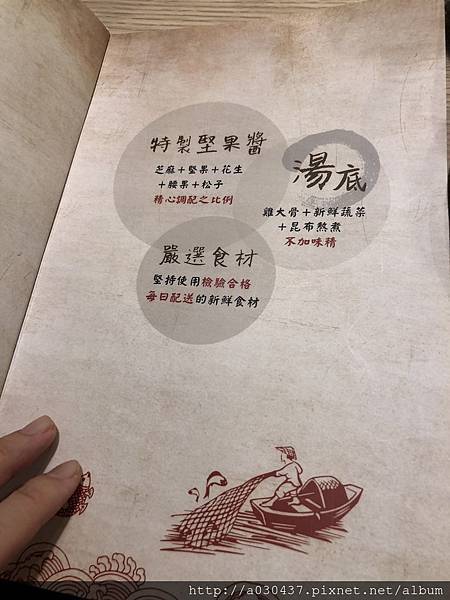 特製堅果醬
芝麻+堅果+花生
+腰果+松子
精心調配之比例
湯底
雞大骨+新鮮蔬菜
+昆布熬煮
不加味精
嚴選食材
堅持使用檢驗合格
每日配送的新鮮食材
http://a030437.pixnet.net/album